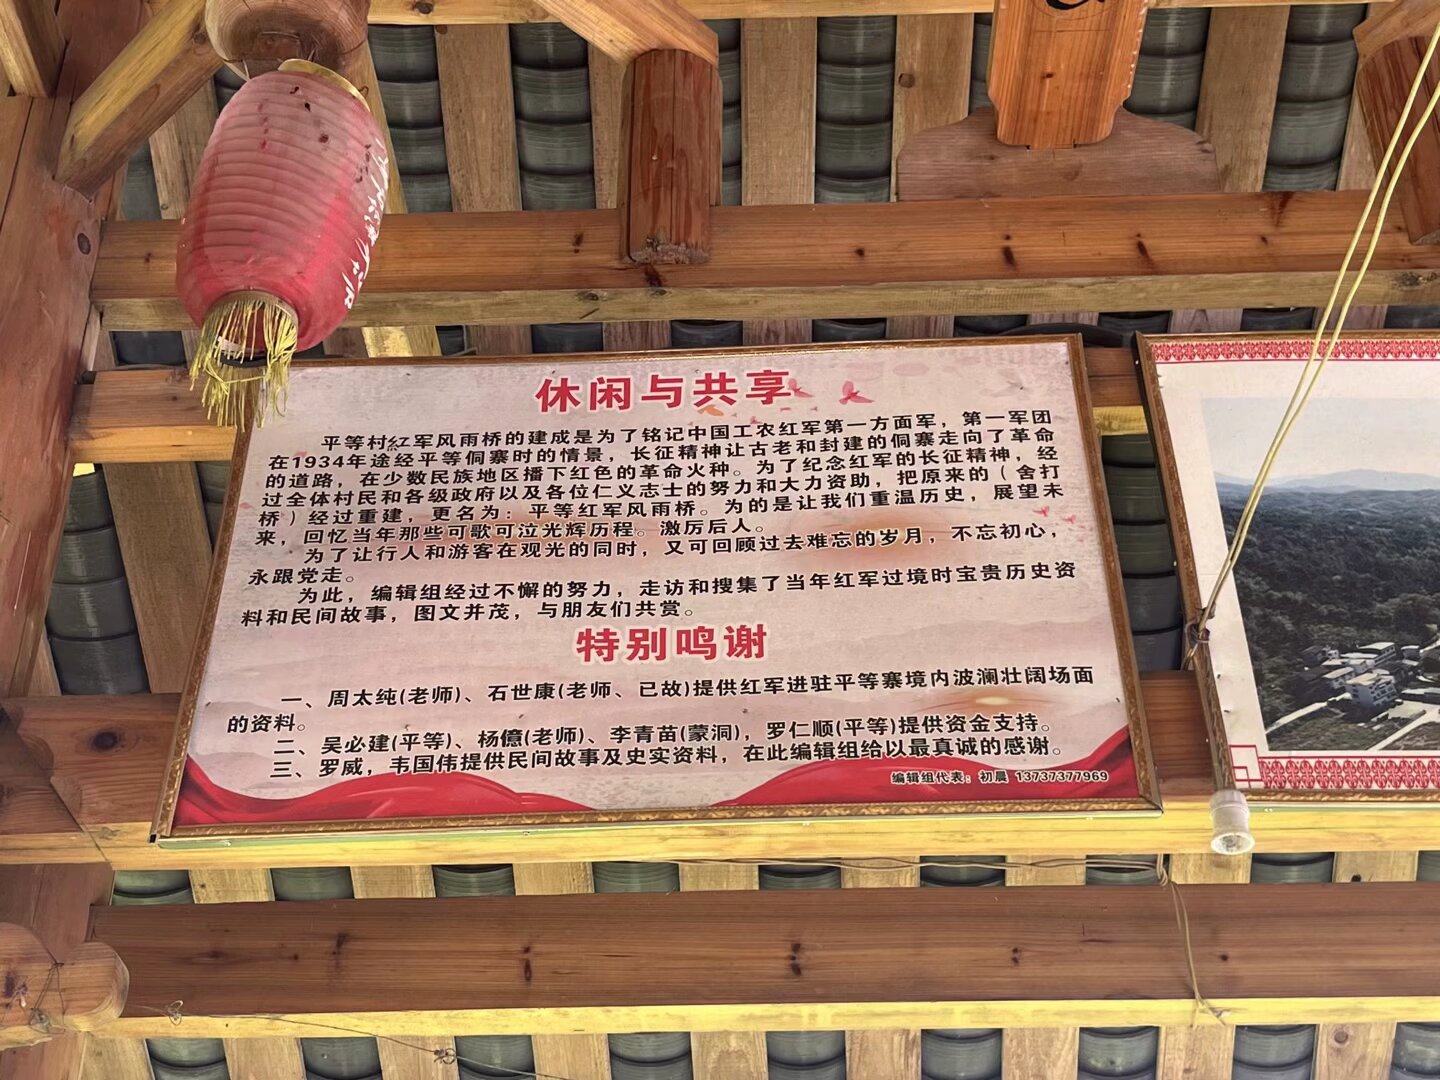 休闲与共享
平等村红军风雨桥的建成是为了铭记中国工农红军第一方面军，第一军团
在1934年途经平等侗寨时的情景，长征精神让古老和封建的侗寨走向了革命
的道路，在少数民族地区播下红色的革命火种。为了纪念红军的长征精神，经
过全体村民和各级政府以及各位仁义志士的努力和大力资助，把原来的（舍打
桥）经过重建，更名为：平等红军风雨桥。为的是让我们重温历史，展望未
来，回忆当年那些可歌可泣光辉历程。激厉后人。
为了让行人和游客在观光的同时，又可回顾过去难忘的岁月，不忘初心，
永跟党走。
为此，编辑组经过不懈的努力，走访和搜集了当年红军过境时宝贵历史资
料和民间故事，图文并茂，与朋友们共赏。
特别鸣谢
一、周太纯(老师)、石世康(老师、已故)提供红军进驻平等寨境内波澜壮阔场面
的资料。
二、吴必建(平等)、杨億(老师)、李青苗(蒙洞)，罗仁顺(平等)提供资金支持。
三、罗威，韦国伟提供民间故事及史实资料，在此编辑组给以最真诚的感谢。
编辑组代表：初晨 13737377969